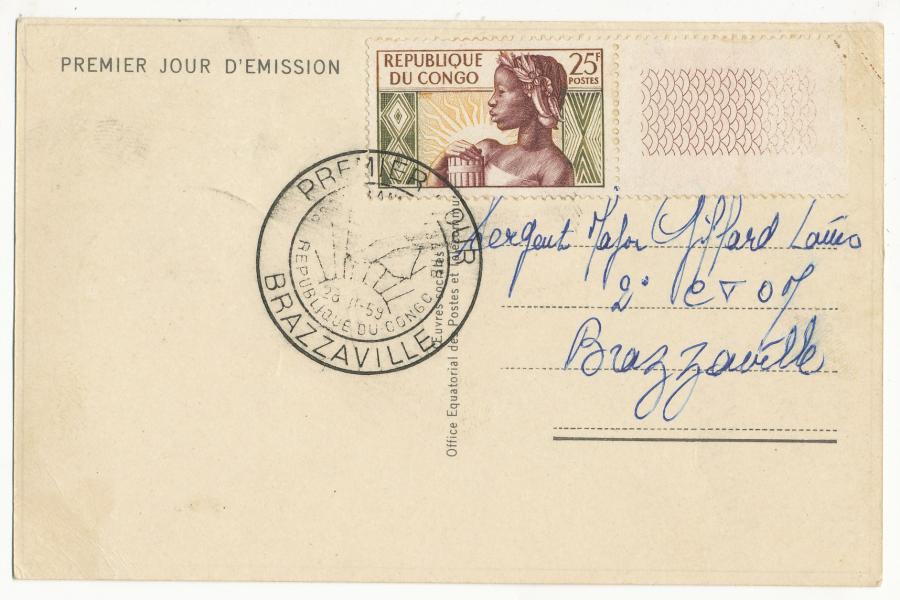 PREMIER JOUR D'EMISSION
REPUBLIQUE
DU CONGO
25F
POSTES
PREMIER JOUR
REPUBLIQUE DU CONGO
28 11-59
BRAZZAVILLE
Œuvres sociales
Office Equatorial des Postes et Télécommu
Sergent Major Giffard Louis
2°
Brazzaville